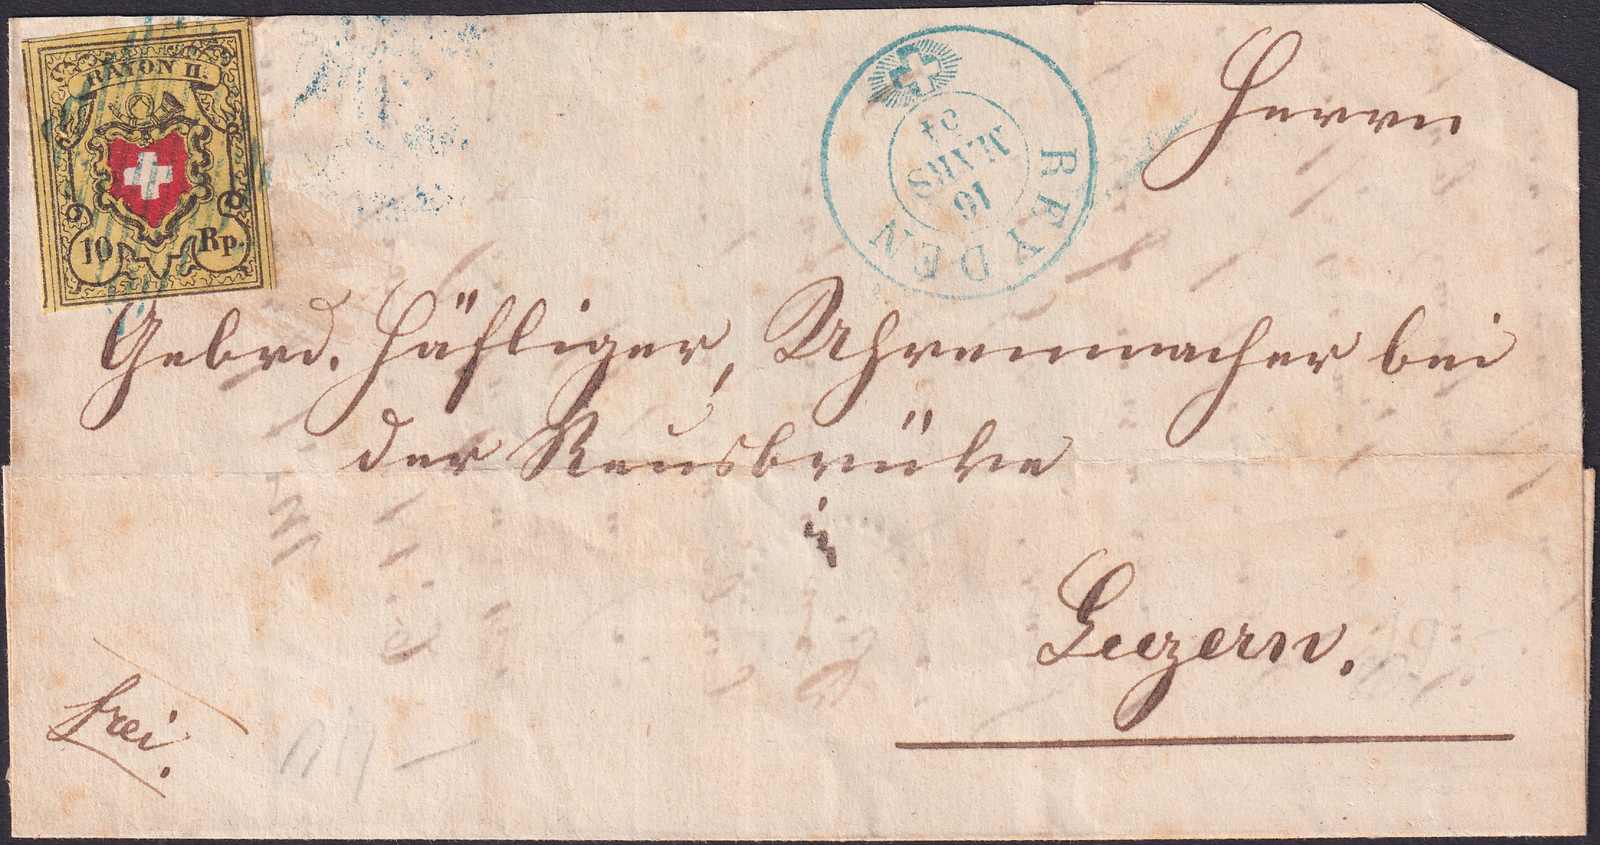 RAYON II.
10 Rp.
REYDEN
16
MARS
54
Herrn
Gebrd. Häfliger, Uhrenmacher bei
der Reusbrüke
in
Luzern.
frei.